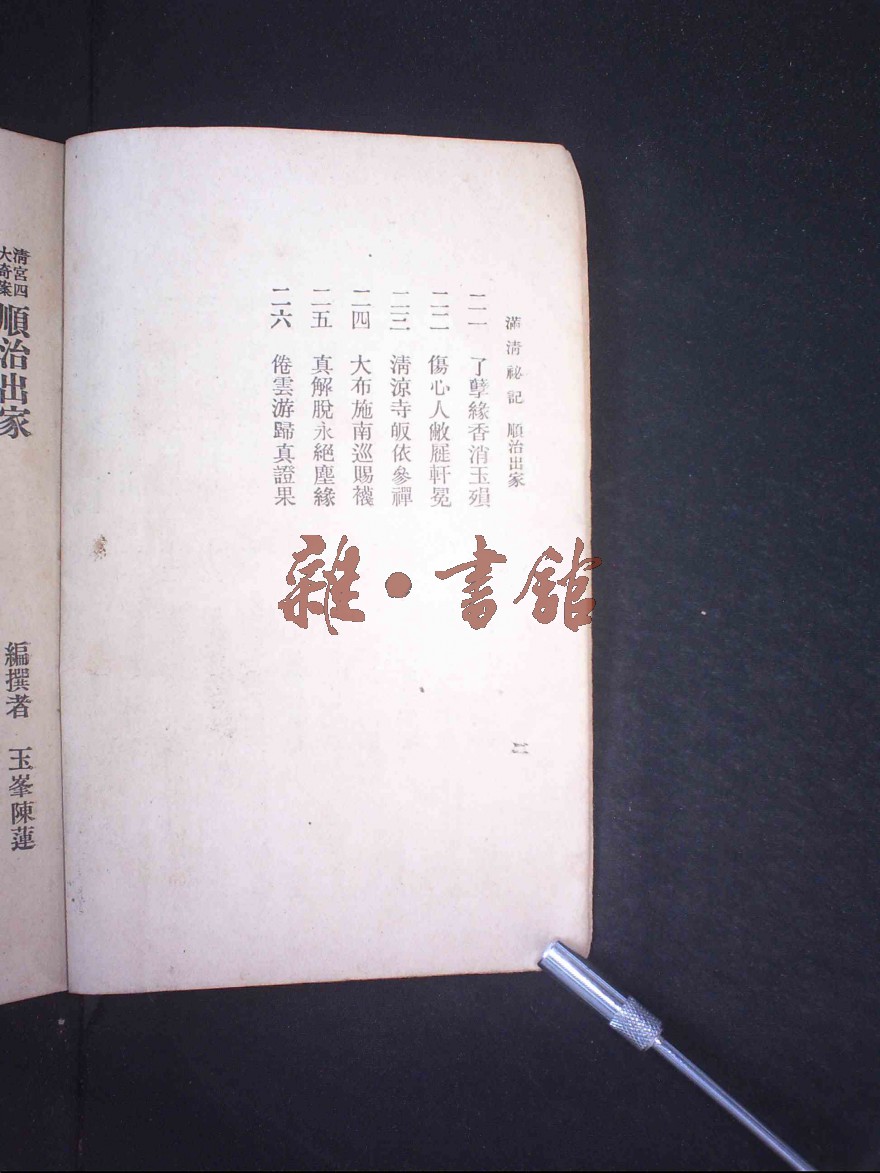 滿清祕記 順治出家
二一 了孽緣香消玉殞
二二 傷心人敝屣軒冕
二三 淸涼寺皈依參禪
二四 大布施南巡賜襪
二五 真解脫永絕塵緣
二六 倦雲游歸真證果
二
雜·書館
淸宮四
大奇案
順治出家
編撰者 玉峯陳蓮